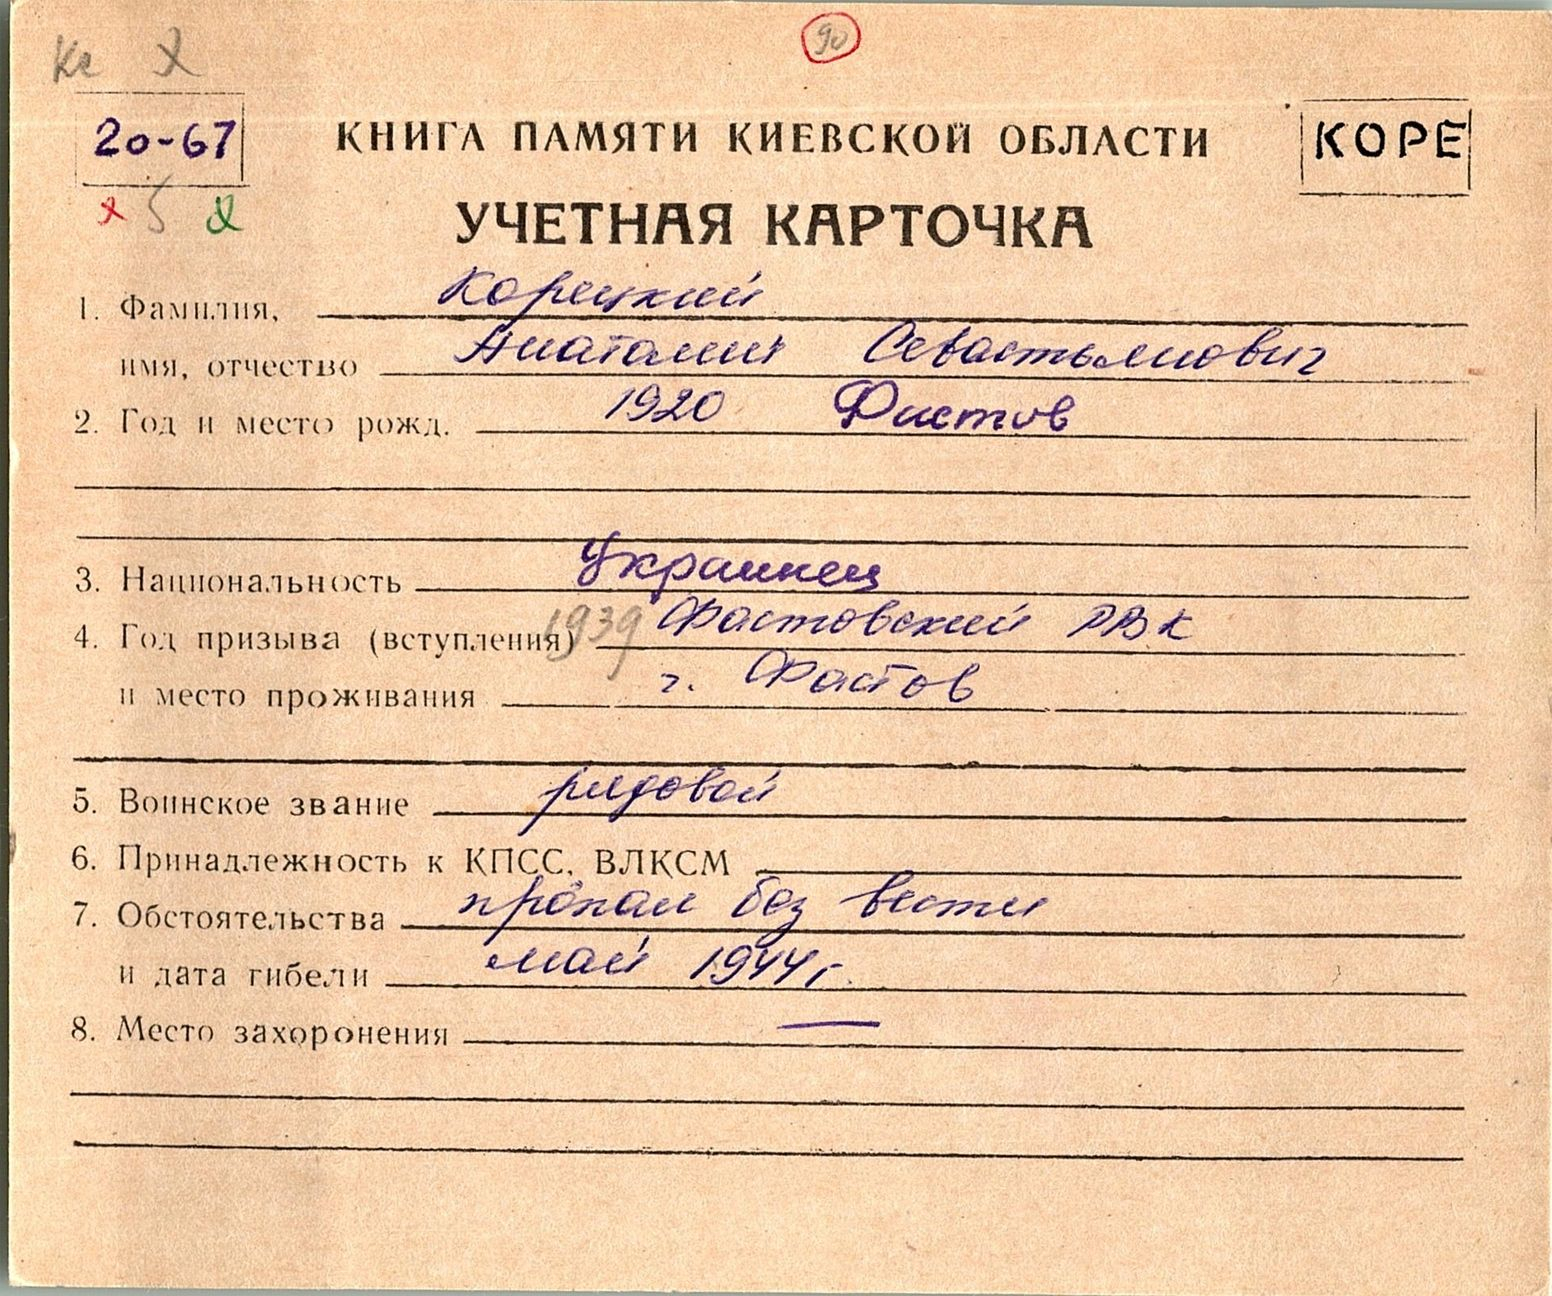 Кс
90
20-67
КНИГА ПАМЯТИ КИЕВСКОЙ ОБЛАСТИ
КОРЕ
5
УЧЕТНАЯ КАРТОЧКА
1. Фамилия, Корецкий
имя, отчество Анатолий Севастьянович
2. Год и место рожд. 1920 Фастов
3. Национальность Украинец
4. Год призыва (вступления) 1939 Фастовский РВК
и место проживания г. Фастов
5. Воинское звание рядовой
6. Принадлежность к КПСС, ВЛКСМ
7. Обстоятельства пропал без вести
и дата гибели май 1944 г.
8. Место захоронения —